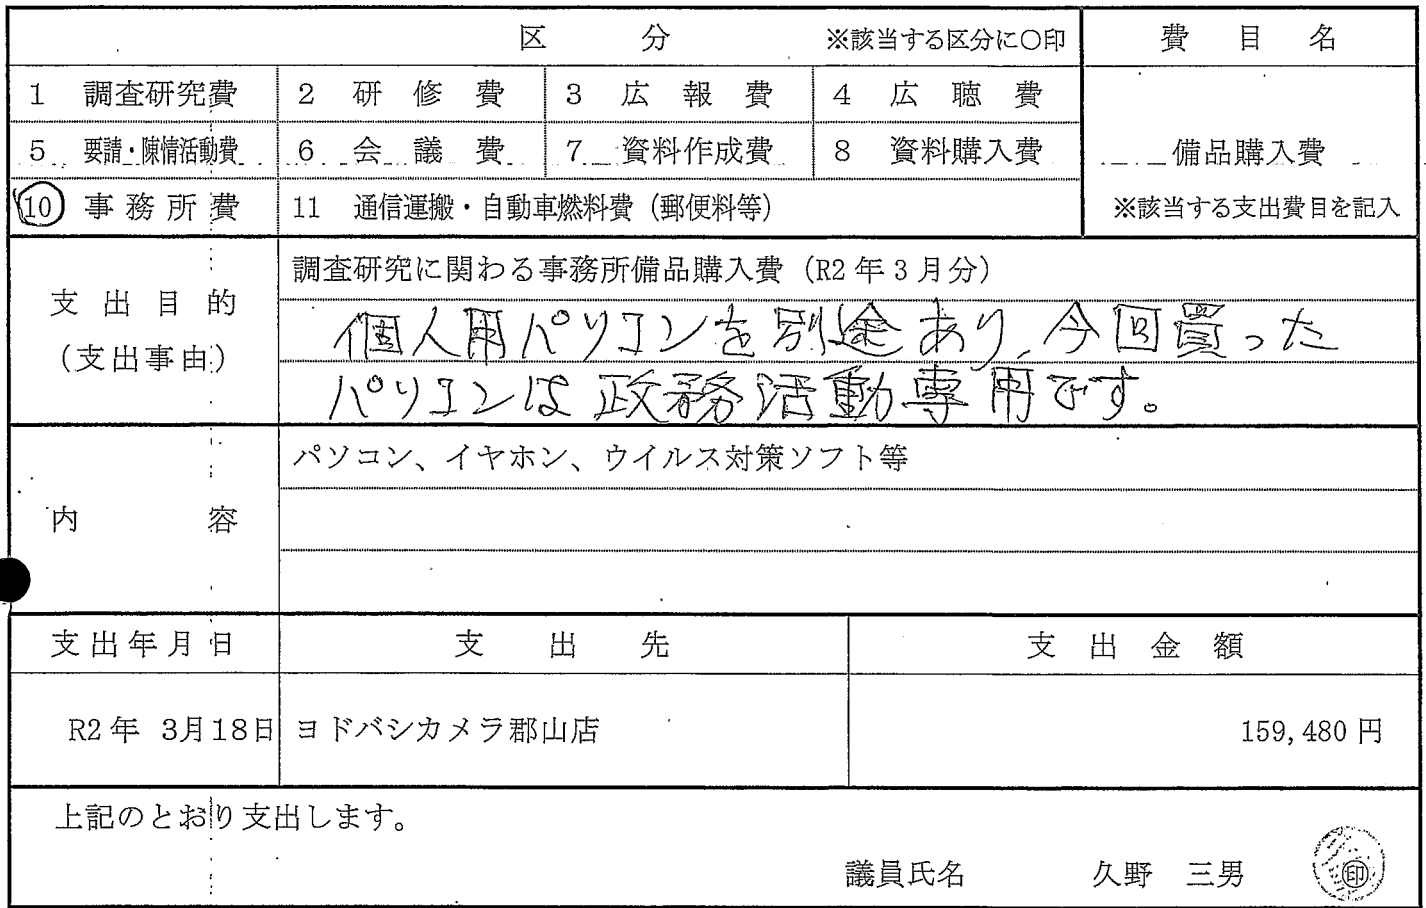 区 分 ※該当する区分に○印 費 目 名
1 調査研究費 2 研 修 費 3 広 報 費 4 広 聴 費
5 要請・陳情活動費 6 会 議 費 7 資料作成費 8 資料購入費 備品購入費
10 事務所費 11 通信運搬・自動車燃料費（郵便料等） ※該当する支出費目を記入
調査研究に関わる事務所備品購入費（R2年3月分）
支出目的
（支出事由）
個人用パソコンを別途あり、今回買った
パソコンは政務活動専用です。
パソコン、イヤホン、ウイルス対策ソフト等
内 容
支出年月日 支 出 先 支 出 金 額
R2年 3月18日 ヨドバシカメラ郡山店 159,480円
上記のとおり支出します。
議員氏名 久野 三男 印